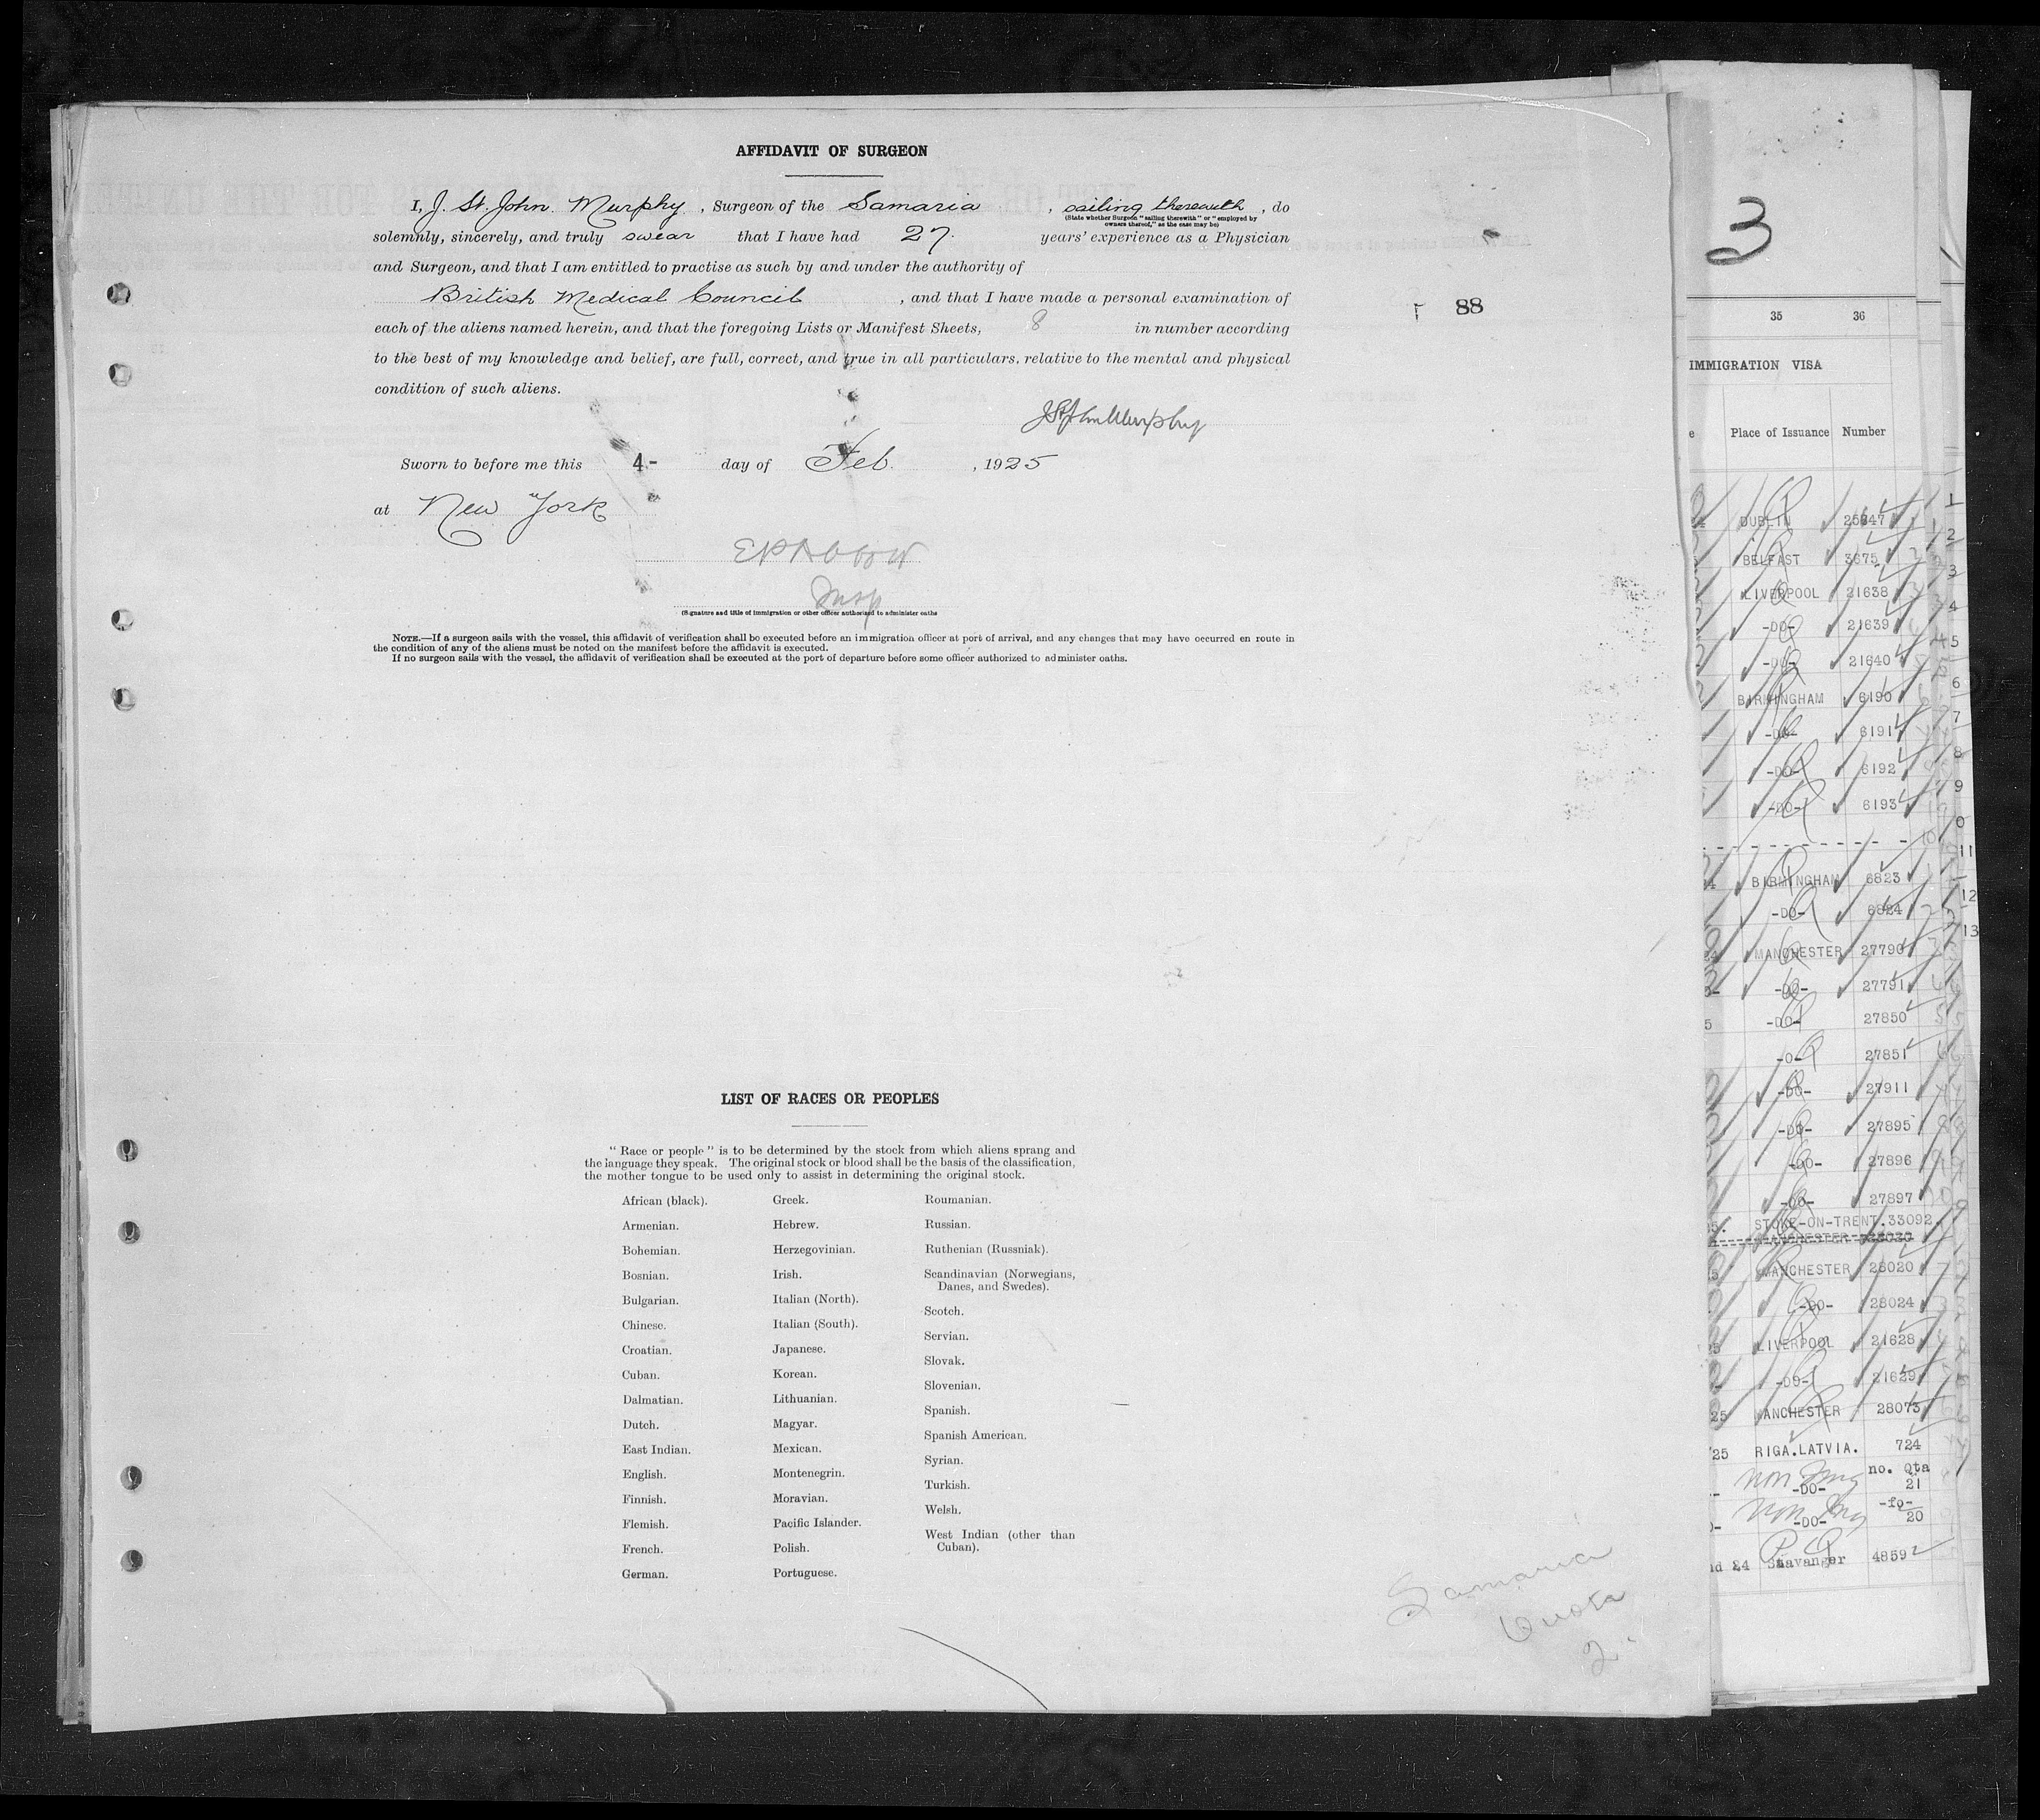 AFFIDAVIT OF SURGEON
I, J. St. John Murphy, Surgeon of the Samaria, sailing therewith, do
(State whether Surgeon "sailing therewith" or "employed by
owners thereof," as the case may be)
solemnly, sincerely, and truly swear that I have had 27 years' experience as a Physician
and Surgeon, and that I am entitled to practise as such by and under the authority of
British Medical Council, and that I have made a personal examination of
each of the aliens named herein, and that the foregoing Lists or Manifest Sheets, 8 in number according
to the best of my knowledge and belief, are full, correct, and true in all particulars, relative to the mental and physical
condition of such aliens.
J St John Murphy
Sworn to before me this 4- day of Feb. , 1925
at New York
Insp
(Signature and title of immigration or other officer authorized to administer oaths
NOTE.—If a surgeon sails with the vessel, this affidavit of verification shall be executed before an immigration officer at port of arrival, and any changes that may have occurred en route in
the condition of any of the aliens must be noted on the manifest before the affidavit is executed.
If no surgeon sails with the vessel, the affidavit of verification shall be executed at the port of departure before some officer authorized to administer oaths.
88
LIST OF RACES OR PEOPLES
"Race or people" is to be determined by the stock from which aliens sprang and
the language they speak. The original stock or blood shall be the basis of the classification,
the mother tongue to be used only to assist in determining the original stock.
African (black).
Armenian.
Bohemian.
Bosnian.
Bulgarian.
Chinese.
Croatian.
Cuban.
Dalmatian.
Dutch.
East Indian.
English.
Finnish.
Flemish.
French.
German.
Greek.
Hebrew.
Herzegovinian.
Irish.
Italian (North).
Italian (South).
Japanese.
Korean.
Lithuanian.
Magyar.
Mexican.
Montenegrin.
Moravian.
Pacific Islander.
Polish.
Portuguese.
Roumanian.
Russian.
Ruthenian (Russniak).
Scandinavian (Norwegians,
Danes, and Swedes).
Scotch.
Servian.
Slovak.
Slovenian.
Spanish.
Spanish American.
Syrian.
Turkish.
Welsh.
West Indian (other than
Cuban).
Samaria
Quota
2
3
35 36
IMMIGRATION VISA
Place of Issuance Number
DUBLIN 25647 1
BELFAST 3675 2
LIVERPOOL 21638 3
-DO- 21639 4
-DO- 21640 5
BIRMINGHAM 6190 6
-DO- 6191 7
-DO- 6192 8
-DO- 6193 9
0
BIRMINGHAM 6823 11
-DO- 6824 12
MANCHESTER 27790 13
-DO- 27791
-DO- 27850
-O- 27851
-DO- 27911
-DO- 27895
-DO- 27896
-DO- 27897
STOKE-ON-TRENT. 33092.
MANCHESTER 28020
MANCHESTER 28020
-DO- 28024
LIVERPOOL 21628
-DO- 21629
25 MANCHESTER 28073
25 RIGA.LATVIA. 724
non Img no. Qta
-DO- 21
non Img -fo-
-DO- 20
24 Stavanger 4859